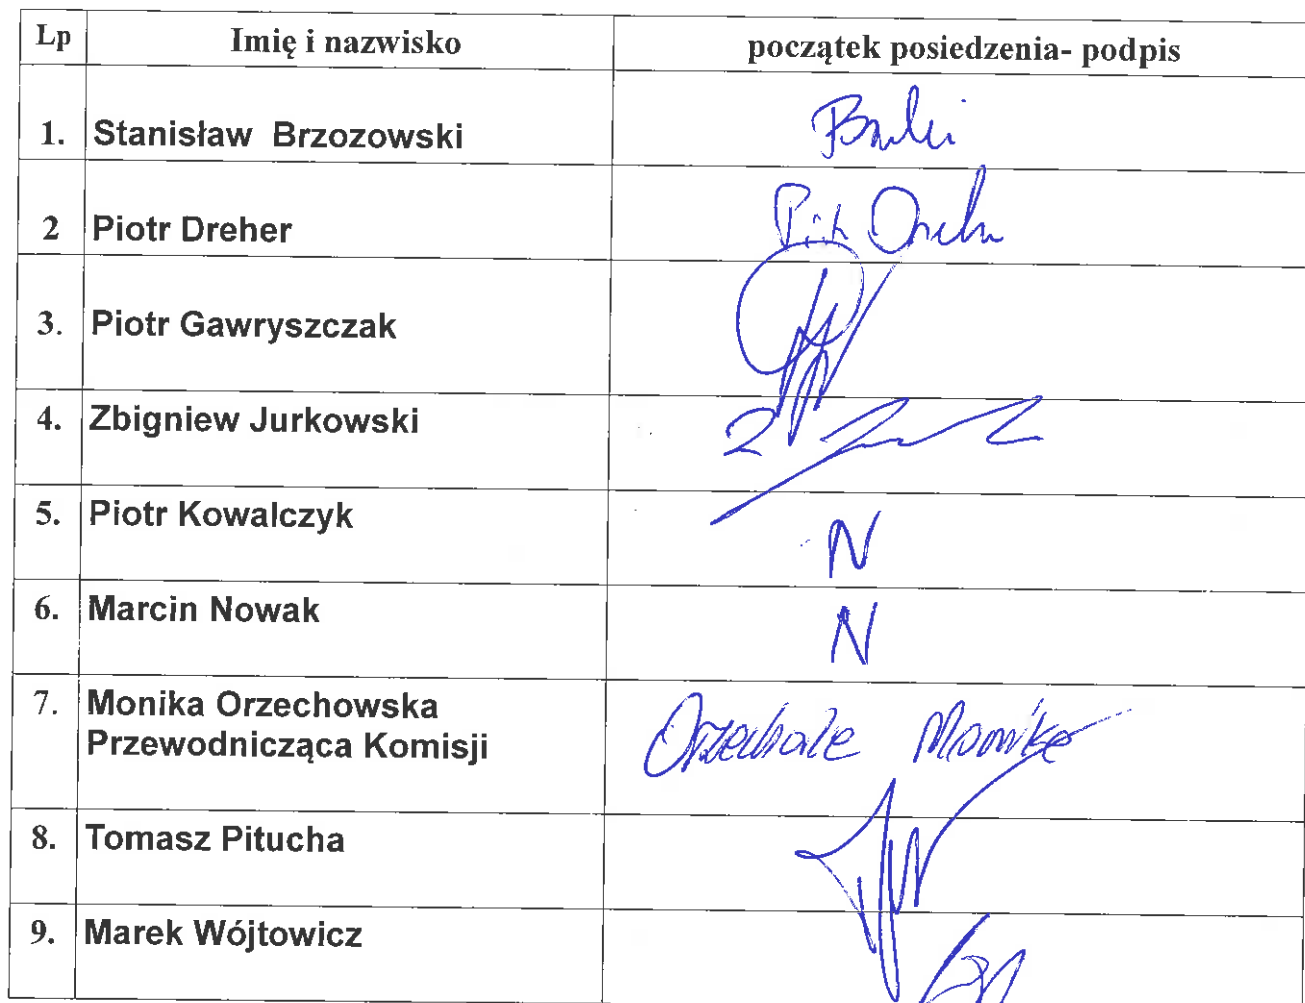 Lp Imię i nazwisko początek posiedzenia- podpis
1. Stanisław Brzozowski
2 Piotr Dreher
3. Piotr Gawryszczak
4. Zbigniew Jurkowski
5. Piotr Kowalczyk N
6. Marcin Nowak N
7. Monika Orzechowska
Przewodnicząca Komisji
8. Tomasz Pitucha
9. Marek Wójtowicz